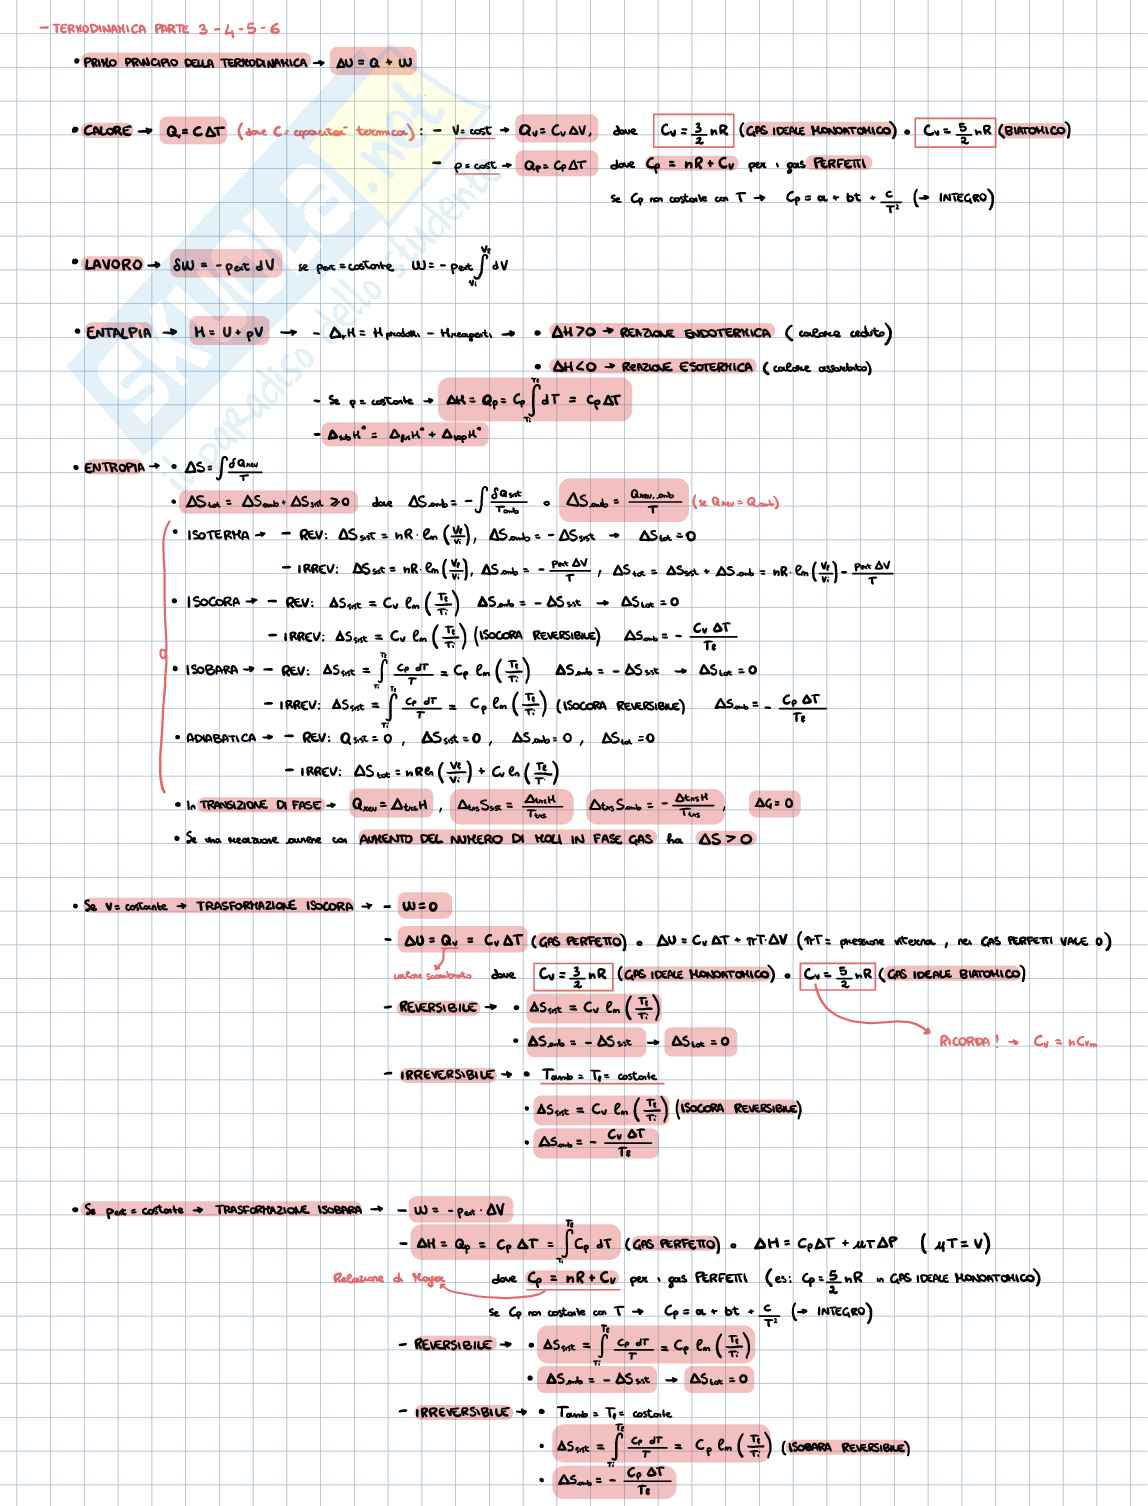 - TERMODINAMICA PARTE 3-4-5-6
• PRIMO PRINCIPIO DELLA TERMODINAMICA → ΔU = Q + W
• CALORE → Q = CΔT (dove C = capacità termica) : - V = cost → Qv = Cv ΔV, dove Cv = 3/2 nR (GAS IDEALE MONOATOMICO) o Cv = 5/2 nR (BIATOMICO)
- p = cost → Qp = Cp ΔT dove Cp = nR + Cv per i gas PERFETTI
se Cp non costante con T → Cp = a + bt + c/T² (→ INTEGRO)
• LAVORO → δW = - pext dV se pext = costante W = - pext ∫Vi Vf dV
• ENTALPIA → H = U + pV → - ΔrH = Hprodotti - Hreagenti → • ΔH > 0 → REAZIONE ENDOTERMICA (calore ceduto)
• ΔH < 0 → REAZIONE ESOTERMICA (calore assorbito)
- Se p = costante → ΔH = Qp = Cp ∫Ti Tf dT = Cp ΔT
- ΔsubH° = ΔfusH° + ΔvapH°
• ENTROPIA → • ΔS = ∫ δQrev/T
• ΔStot = ΔSamb + ΔSsist ≥ 0 dove ΔSamb = - ∫ δQsist/Tamb o ΔSamb = Qrev, amb/T (se Qrev = Qamb)
• ISOTERMA → - REV: ΔSsist = nR · ln (Vf/Vi), ΔSamb = - ΔSsist → ΔStot = 0
- IRREV: ΔSsist = nR · ln (Vf/Vi), ΔSamb = - pext ΔV/T , ΔStot = ΔSsist + ΔSamb = nR · ln (Vf/Vi) - pext ΔV/T
• ISOCORA → - REV: ΔSsist = Cv ln (Tf/Ti) ΔSamb = - ΔSsist → ΔStot = 0
- IRREV: ΔSsist = Cv ln (Tf/Ti) (ISOCORA REVERSIBILE) ΔSamb = - Cv ΔT/Tf
• ISOBARA → - REV: ΔSsist = ∫Ti Tf Cp dT/T = Cp ln (Tf/Ti) ΔSamb = - ΔSsist → ΔStot = 0
- IRREV: ΔSsist = ∫Ti Tf Cp dT/T = Cp ln (Tf/Ti) (ISOCORA REVERSIBILE) ΔSamb = - Cp ΔT/Tf
• ADIABATICA → - REV: Qsist = 0 , ΔSsist = 0 , ΔSamb = 0 , ΔStot = 0
- IRREV: ΔStot = nR ln (Vf/Vi) + Cv ln (Tf/T)
• In TRANSIZIONE DI FASE → Qrev = ΔtrsH , ΔtrsSsist = ΔtrsH/Ttrs ΔtrsSamb = - ΔtrsH/Ttrs , ΔG = 0
• Se una reazione avviene con AUMENTO DEL NUMERO DI MOLI IN FASE GAS ha ΔS > 0
• Se V = costante → TRASFORMAZIONE ISOCORA → - W = 0
- ΔU = Qv = Cv ΔT (GAS PERFETTO) o ΔU = Cv ΔT + πT · ΔV (πT = pressione interna, nei GAS PERFETTI VALE 0)
calore scambiato dove Cv = 3/2 nR (GAS IDEALE MONOATOMICO) o Cv = 5/2 nR (GAS IDEALE BIATOMICO)
- REVERSIBILE → • ΔSsist = Cv ln (Tf/Ti)
• ΔSamb = - ΔSsist → ΔStot = 0
RICORDA! → Cv = nCvm
- IRREVERSIBILE → • Tamb = Tf = costante
• ΔSsist = Cv ln (Tf/Ti) (ISOCORA REVERSIBILE)
• ΔSamb = - Cv ΔT/Tf
• Se pext = costante → TRASFORMAZIONE ISOBARA → - W = - pext · ΔV
- ΔH = Qp = Cp ΔT = ∫Ti Tf Cp dT (GAS PERFETTO) o ΔH = Cp ΔT + μT ΔP (μT = V)
Relazione di Mayer dove Cp = nR + Cv per i gas PERFETTI (es: Cp = 5/2 nR in GAS IDEALE MONOATOMICO)
se Cp non costante con T → Cp = a + bt + c/T² (→ INTEGRO)
- REVERSIBILE → • ΔSsist = ∫Ti Tf Cp dT/T = Cp ln (Tf/Ti)
• ΔSamb = - ΔSsist → ΔStot = 0
- IRREVERSIBILE → • Tamb = Tf = costante
• ΔSsist = ∫Ti Tf Cp dT/T = Cp ln (Tf/Ti) (ISOBARA REVERSIBILE)
• ΔSamb = - Cp ΔT/Tf
SKUOLA.net
il paradiso dello studente